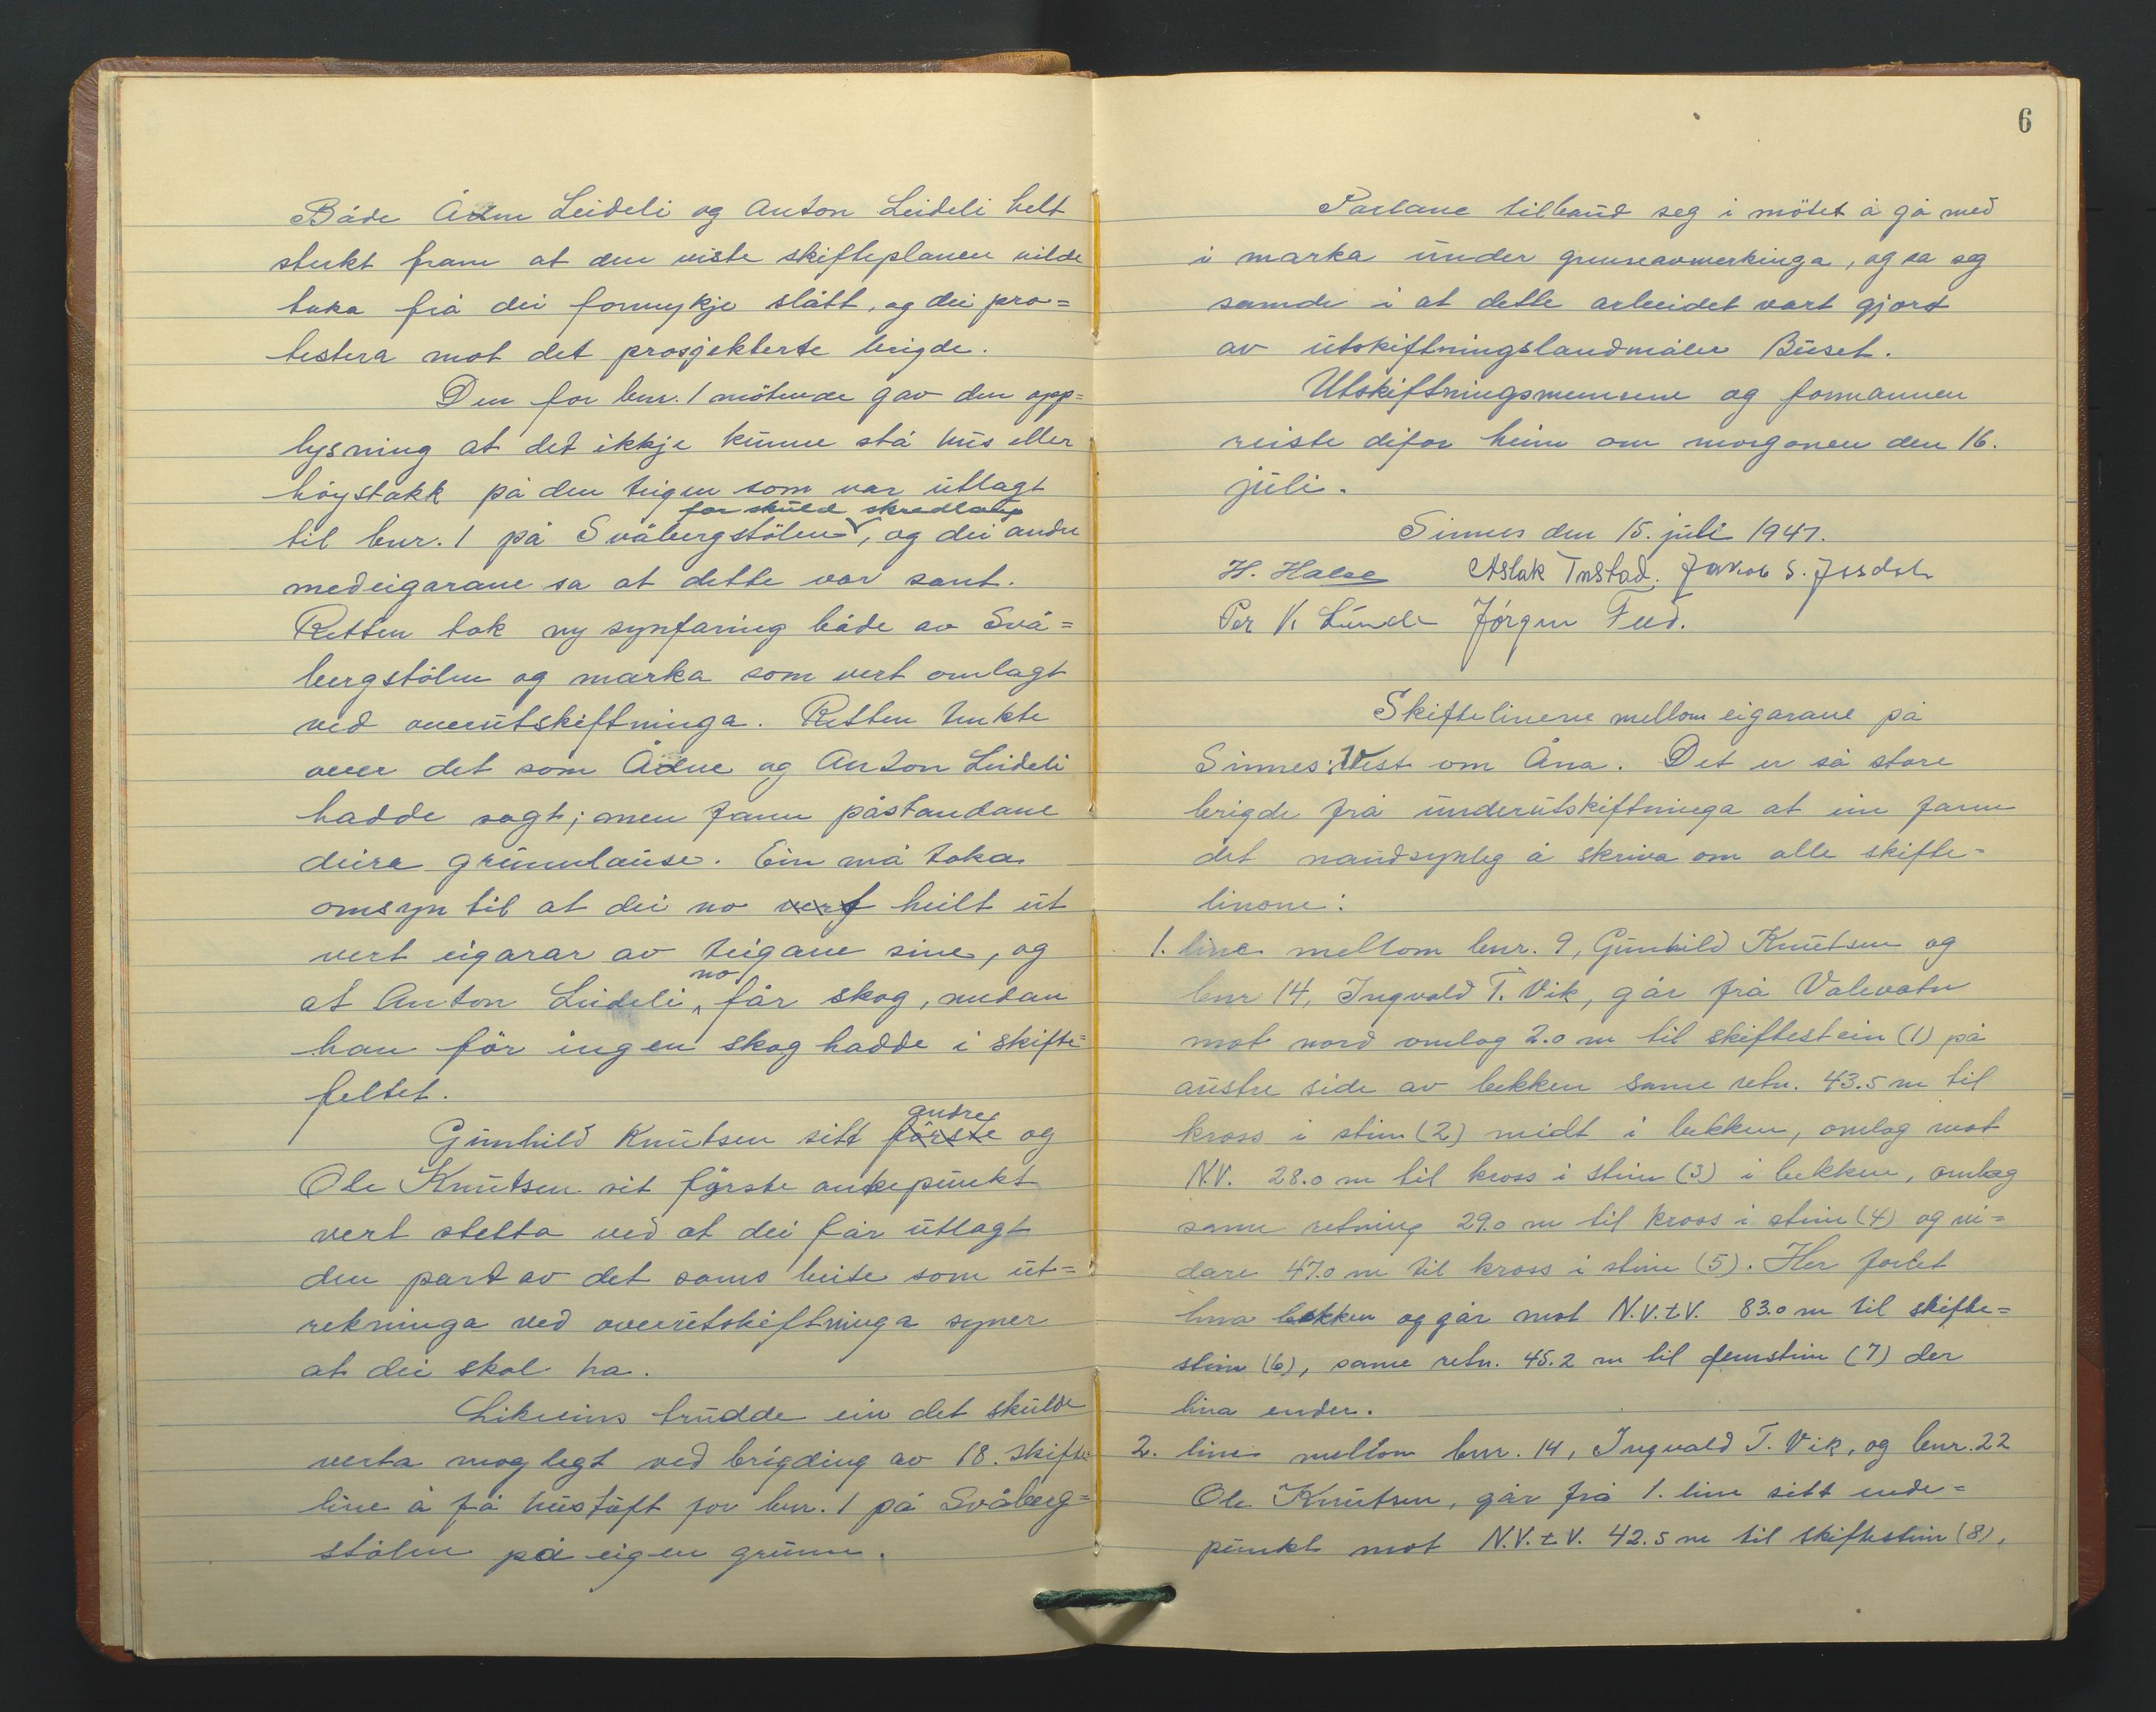 Både Ådne Leideli og Anton Leideli helt
sterkt fram at den viste skifteplanen vilde
taka frå dei formykje slått, og dei pro=
testera mot det prosjekterte brigde.
Den for bnr. 1 mötende gav den opp=
lysning at det ikkje kunne stå hus eller
höystakk på den teigen som var utlagt
for skuld skredlaup
til bnr. 1 på Svåbergstölen, og dei andre
medeigarane sa at dette var sant.
Retten tok ny synfaring både av Svå=
bergstölen og marka som vert omlagt
ved overutskiftninga. Retten tenkte
over det som Ådne og Anton Leideli
hadde sagt; men fann påstandane
deira grunnlause. Ein må taka
omsyn til at dei no vert heilt ut
vert eigarar av teigane sine, og
no
at Anton Leideli, får skog, medan
han för ingen skog hadde i skifte=
feltet.
andre
Gunhild Knutsen sitt förste og
Ole Knutsen sit förste ankepunkt
vert stetta ved at dei får utlagt
den part av det sams beite som ut=
rekninga ved overutskiftninga syner
at dei skal ha.
Likeeins trudde ein det skulde
verta moglegt ved brigding av 18. skifte=
line å få hustuft for bnr. 1 på Svåberg=
stölen på eigen grunn.
6
Partane tilbaud seg i mötet å gå med
i marka under grenseavmerkinga, og sa seg
samde i at dette arbeidet vart gjort
av utskiftningslandmåler Buset.
Utskiftningsmennene og formannen
reiste difor heim om morgonen den 16.
juli.
Sinnes den 15. juli 1947.
H. Halse Aslak Tnstad. Jakob S.
Per V. Lunde Jörgen Feed.
Skiftelinene mellom eigarane på
Sinnes: Vest om Åna. Det er så store
brigde frå underutskiftninga at ein fann
det naudsynleg å skriva om alle skifte=
linone:
1. line mellom bnr. 9, Gunhild Knutsen og
bnr 14, Ingvald T. Vik, går frå Valevatn
mot nord omlag 2.0 m til skiftestein (1) på
austre side av bekken same retn. 43.5 m til
kross i stein (2) midt i bekken, omlag mot
N.V. 28.0 m til kross i stein (3) i bekken, omlag
same retning 29.0 m til kross i stein (4) og vi=
dare 47.0 m til kross i stein (5). Her forlet
lina bekken og går mot N.V.t.V. 83.0 m til skifte=
stein (6), same retn. 45.2 m til femstein (7) der
lina ender.
2. line mellom bnr. 14, Ingvald T. Vik, og bnr. 22
Ole Knutsen, går frå 1. line sitt ende=
punkt mot N.V.t.V. 42.5 m til skiftestein (8),